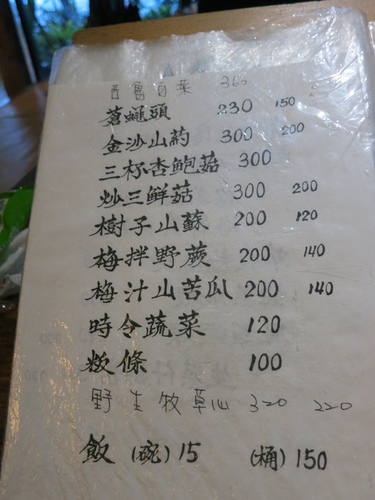 百葉 360
蒼蠅頭 230 150
金沙山藥 300 200
三杯杏鮑菇 300
炒三鮮菇 300 200
樹子山蘇 200 120
梅拌野蕨 200 140
梅汁山苦瓜 200 140
時令蔬菜 120
粄條 100
野生牧草心 320 220
飯(碗)15 (桶)150